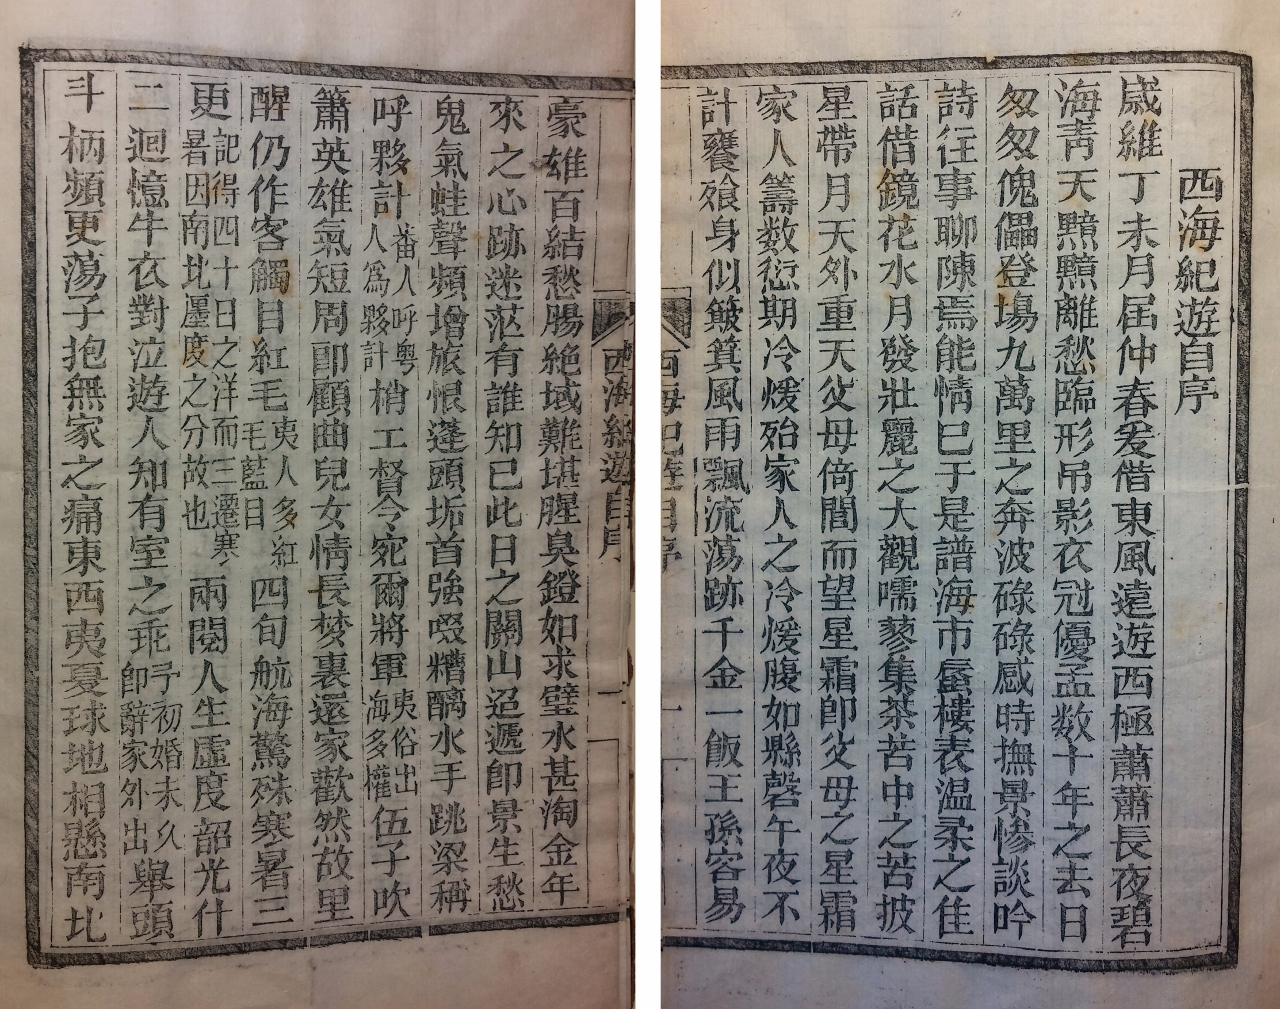 西海紀遊自序
歲維丁未月屆仲春爰借東風遠遊西極蕭蕭長夜碧
海靑天黯黯離愁臨形吊影衣冠優孟數十年之去日
匆匆傀儡登塲九萬里之奔波碌碌感時撫景慘談吟
詩往事聊陳焉能情已于是譜海市蜃樓表温柔之佳
話借鏡花水月發壯麗之大觀嚅蓼集荼苦中之苦披
星帶月天外重天父母倚閭而望星霜卽父母之星霜
家人籌數愆期冷煖殆家人之冷煖腹如縣磬午夜不
計饔飱身似簸箕風雨飄流蕩跡千金一飯王孫容易
西海紀遊自序
一
豪雄百結愁腸絕域難堪腥臭鐙如求璧水甚淘金年
來之心跡迷茫有誰知已此日之關山迢遞卽景生愁
鬼氣蛙聲頻增旅恨蓬頭垢首強啜糟醨水手跳梁稱
呼夥計番人呼粵人為夥計梢工督令宛爾將軍夷俗出海多權伍子吹
簫英雄氣短周郎顧曲兒女情長梦裏還家歡然故里
醒仍作客觸目紅毛夷人多紅毛藍目四旬航海驚殊寒暑三
更記得四十日之洋而三遷寒暑因南北躔度之分故也兩閱人生虛度韶光什
二迴憶牛衣對泣遊人知有室之乖予初婚未久卽辭家外出舉頭
斗柄頻更蕩子抱無家之痛東西夷夏球地相懸南北